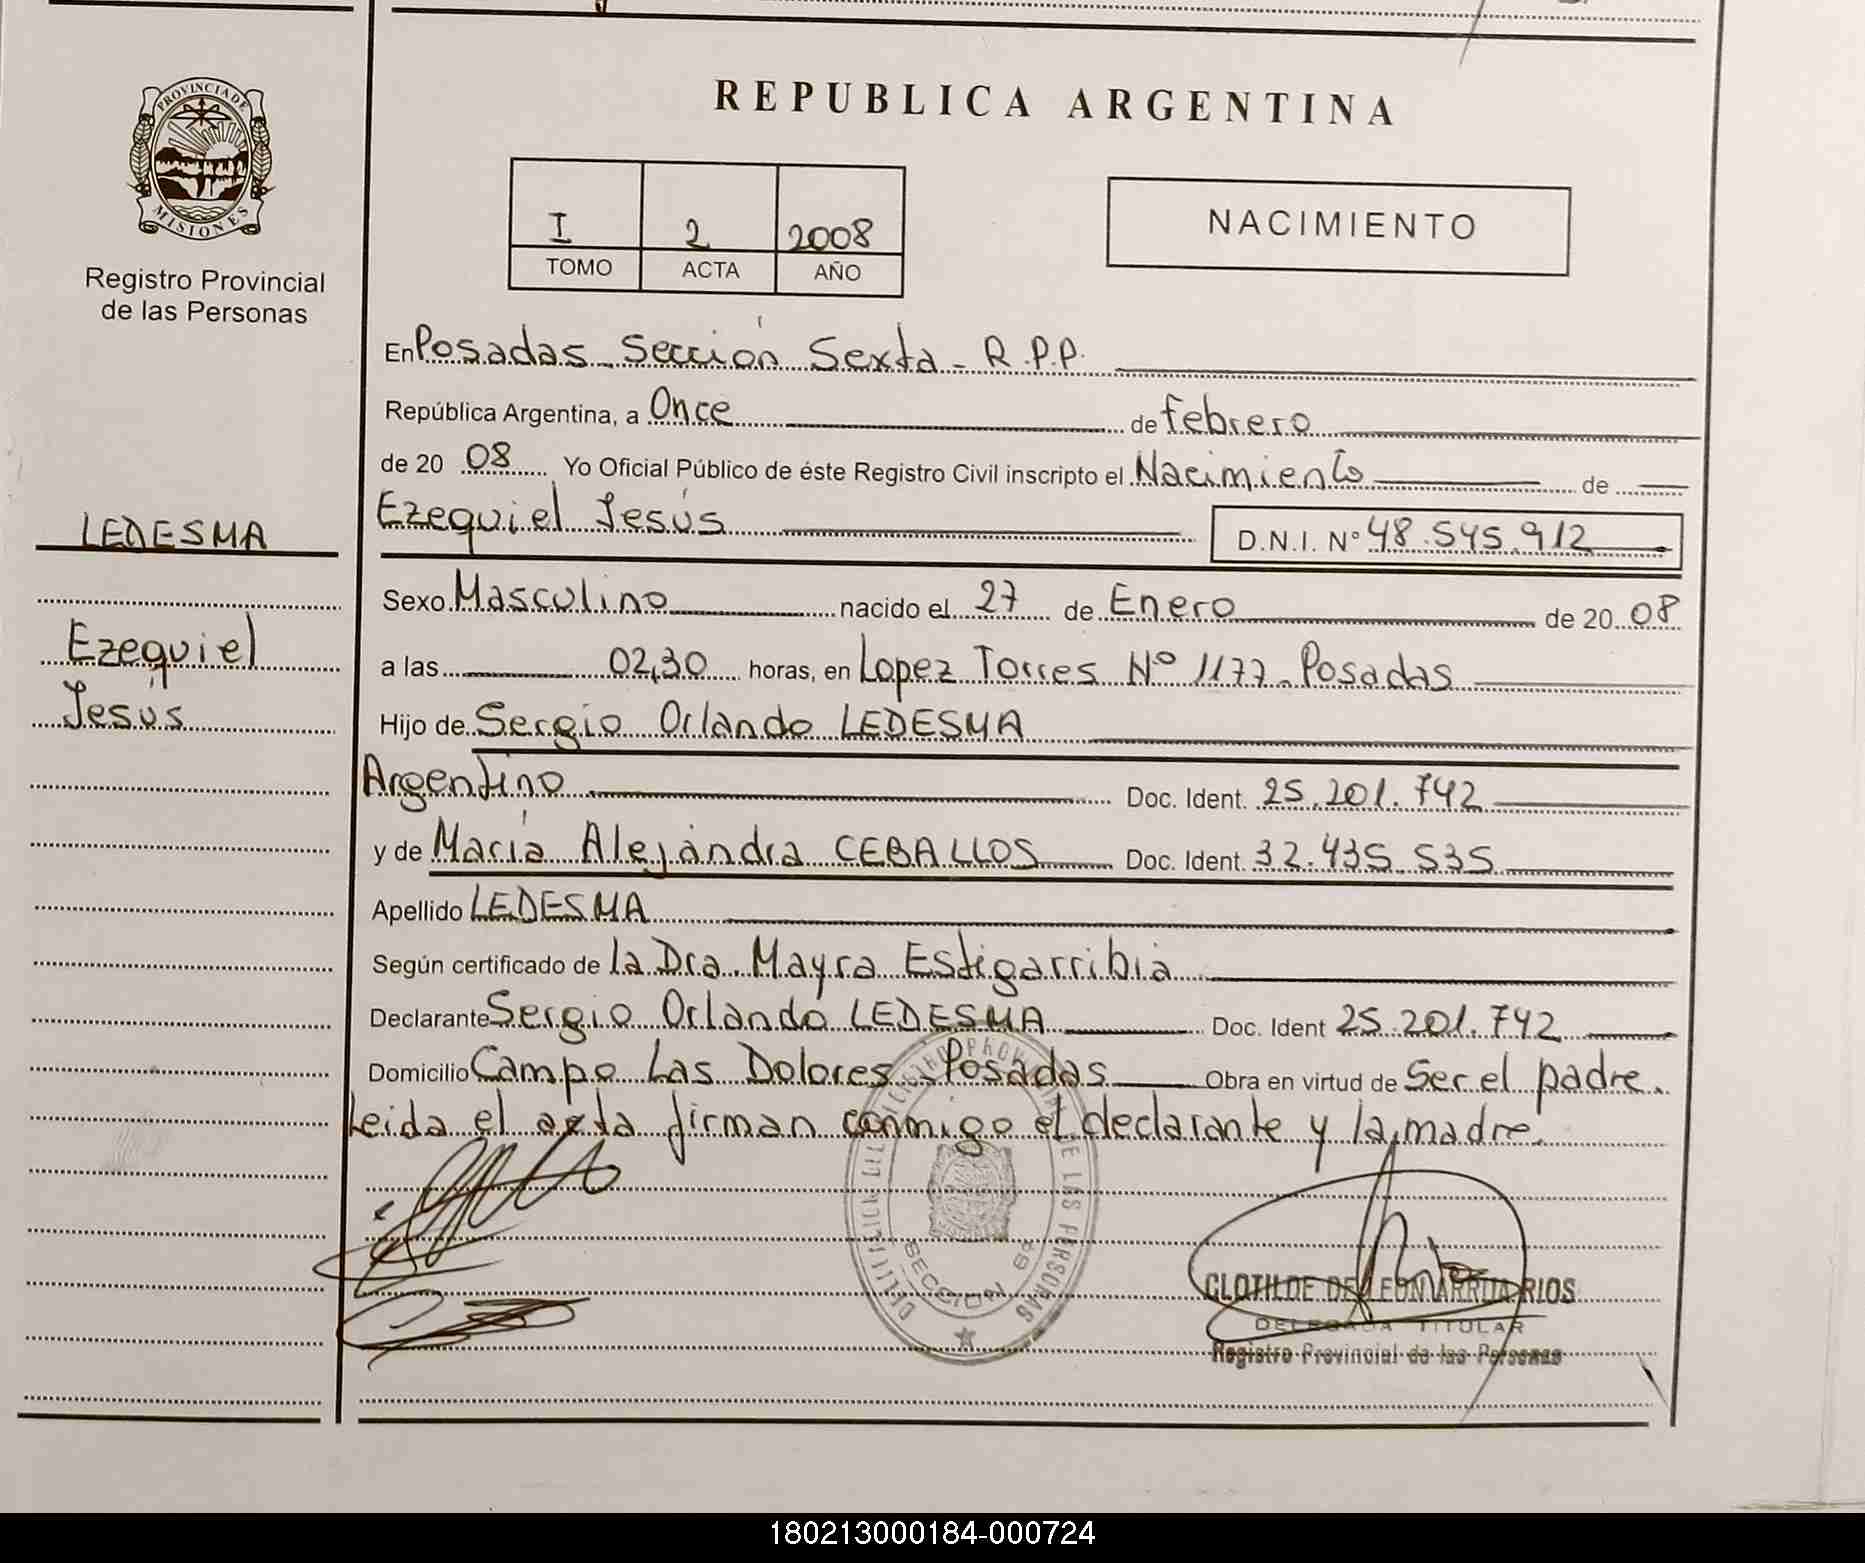 REPUBLICA ARGENTINA
PROVINCIA DE
MISIONES
Registro Provincial
de las Personas
I 2 2008
TOMO ACTA AÑO
NACIMIENTO
En Posadas - Sección Sexta - R.P.P.
República Argentina, a Once de febrero
de 20 08 Yo Oficial Público de éste Registro Civil inscripto el Nacimiento de
Ezequiel Jesús D.N.I. Nº 48.545.912
LEDESMA
Ezequiel
Jesús
Sexo Masculino nacido el 27 de Enero de 20 08
a las 02,30 horas, en Lopez Torres Nº 1177 - Posadas
Hijo de Sergio Orlando LEDESMA
Argentino Doc. Ident. 25.201.742
y de María Alejandra CEBALLOS Doc. Ident. 32.435.535
Apellido LEDESMA
Según certificado de la Dra. Mayra Estigarribia
Declarante Sergio Orlando LEDESMA Doc. Ident 25.201.742
Domicilio Campo Las Dolores - Posadas Obra en virtud de Ser el padre.
Leida el acta firman conmigo el declarante y la madre.
SECCION 6ª
DE LAS PERSONAS
CLOTILDE DE LEON ARRUA RIOS
DELEGADA TITULAR
Registro Provincial de las Personas
180213000184-000724